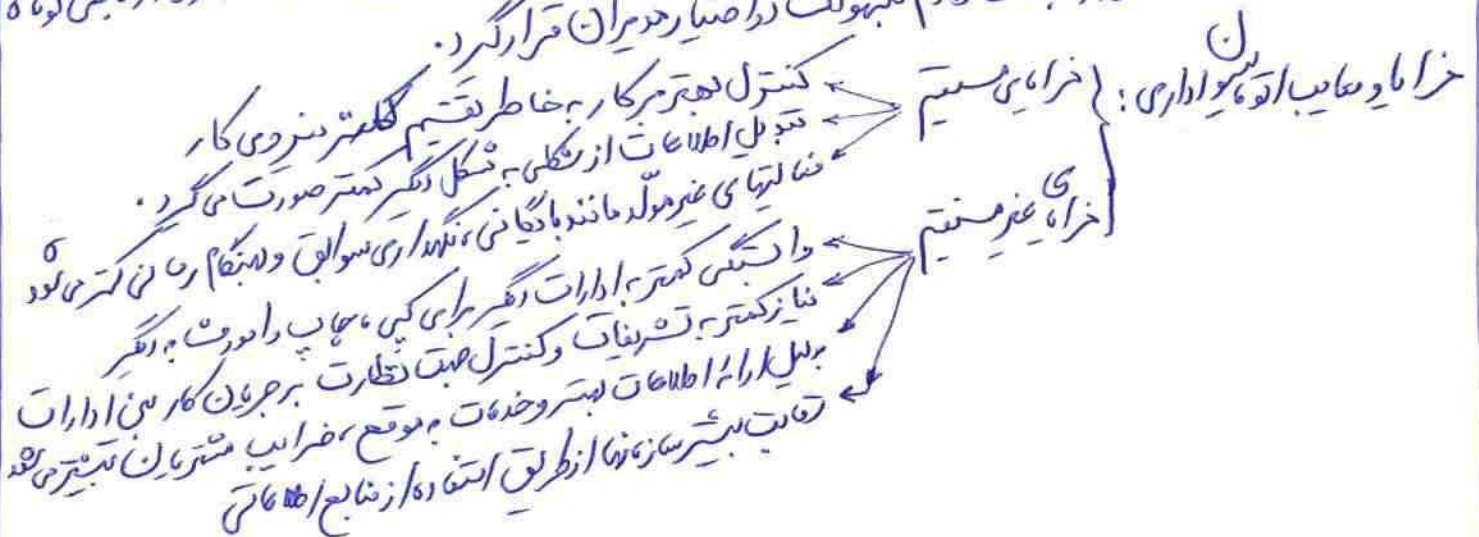 سهولت در اختیار مدیران قرار گیرد.
مزایا و معایب اتوماسیون اداری:
مزایای مستقیم
کنترل بهتر بر کار به خاطر تقسیم کمتر نیروی کار
تبدیل اطلاعات از شکلی به شکل دیگر کمتر صورت می گیرد.
فعالیتهای غیر مولد مانند بایگانی، نگهداری سوابق و بهنگام رسانی کمتر می شود
مزایای غیر مستقیم
وابستگی کمتر به ادارات دیگر برای کپی، چاپ و امور مشابه دیگر
نیاز کمتر به تشریفات و کنترل جهت نظارت بر جریان کار بین ادارات
بدلیل ارائه اطلاعات بهتر و خدمات به موقع، مشتریان بیشتر می شود
رقابت بیشتر سازمانها از طریق استفاده از منابع اطلاعاتی